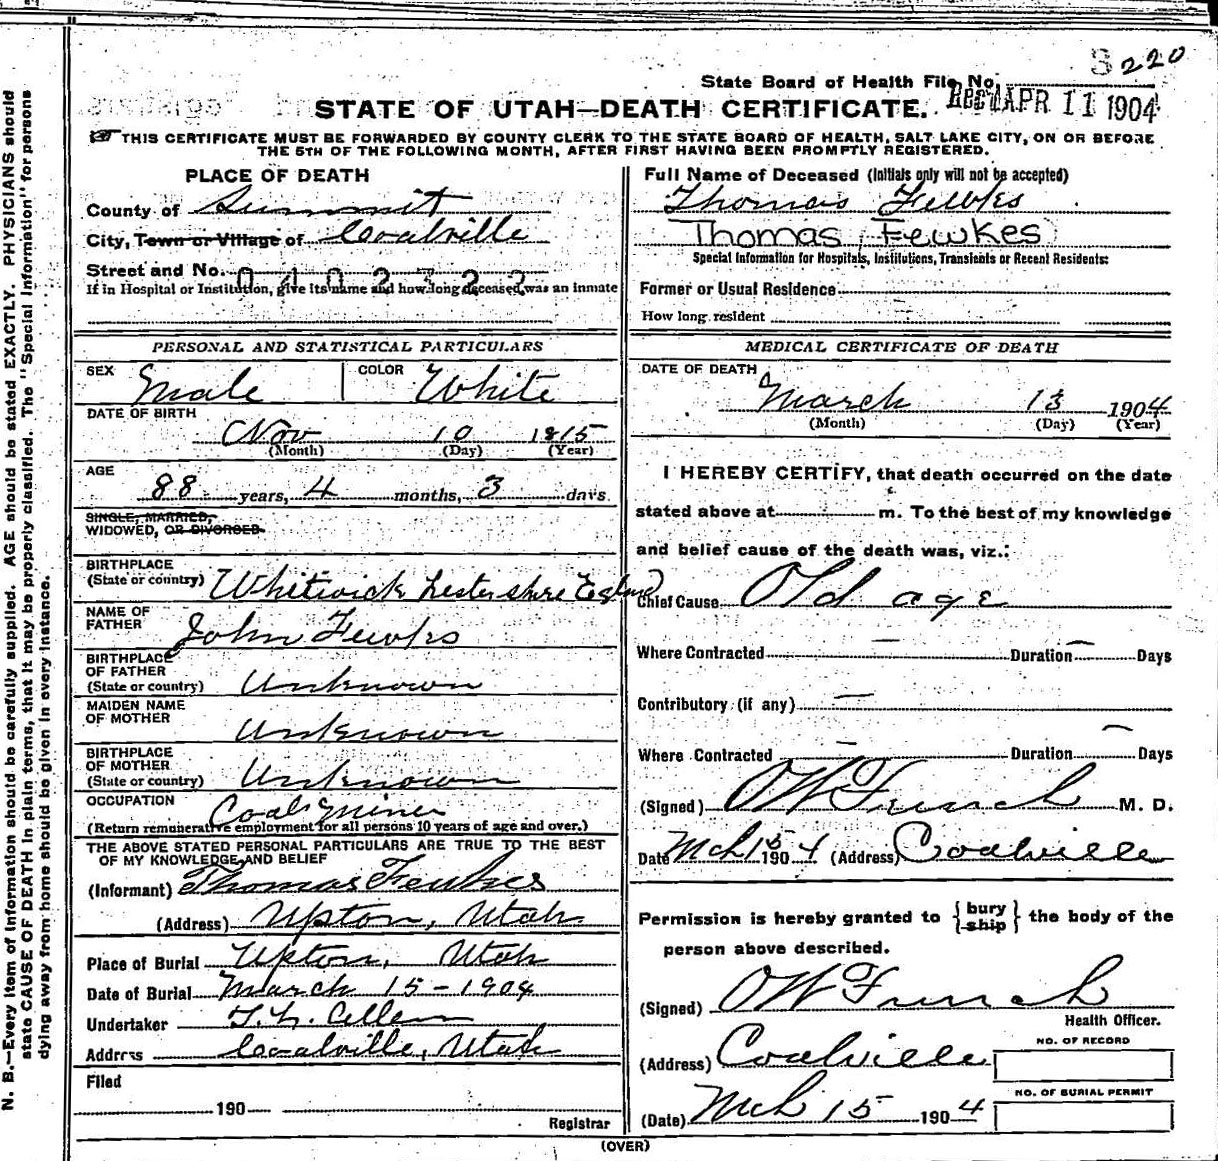 S 220
State Board of Health File No.
Rec'd APR 11 1904
STATE OF UTAH—DEATH CERTIFICATE.
THIS CERTIFICATE MUST BE FORWARDED BY COUNTY CLERK TO THE STATE BOARD OF HEALTH, SALT LAKE CITY, ON OR BEFORE
THE 5TH OF THE FOLLOWING MONTH, AFTER FIRST HAVING BEEN PROMPTLY REGISTERED.
PLACE OF DEATH
County of Summit
City, Town or Village of Coalville
Street and No. 0402322
If in Hospital or Institution, give its name and how long deceased was an inmate
Full Name of Deceased (Initials only will not be accepted)
Thomas Fewkes
Thomas Fewkes
Special Information for Hospitals, Institutions, Transients or Recent Residents:
Former or Usual Residence
How long resident
PERSONAL AND STATISTICAL PARTICULARS
SEX Male COLOR White
DATE OF BIRTH
Nov 10 1815
(Month) (Day) (Year)
AGE
88 years, 4 months, 3 days
SINGLE, MARRIED,
WIDOWED, OR DIVORCED
BIRTHPLACE
(State or country) Whitwick Lestershire England
NAME OF
FATHER John Fewks
BIRTHPLACE
OF FATHER
(State or country) Unknown
MAIDEN NAME
OF MOTHER Unknown
BIRTHPLACE
OF MOTHER
(State or country) Unknown
OCCUPATION Coal Miner
(Return remunerative employment for all persons 10 years of age and over.)
THE ABOVE STATED PERSONAL PARTICULARS ARE TRUE TO THE BEST
OF MY KNOWLEDGE AND BELIEF
(Informant) Thomas Fewkes
(Address) Upton, Utah
Place of Burial Upton, Utah
Date of Burial March 15-1904
Undertaker Allen
Address Coalville, Utah
Filed
190
Registrar
MEDICAL CERTIFICATE OF DEATH
DATE OF DEATH
March 13 1904
(Month) (Day) (Year)
I HEREBY CERTIFY, that death occurred on the date
stated above at m. To the best of my knowledge
and belief cause of the death was, viz.:
Chief Cause Old age
Where Contracted — Duration — Days
Contributory (if any) —
Where Contracted — Duration — Days
(Signed) OW French M. D.
Date Mch 15 1904 (Address) Coalville
Permission is hereby granted to {bury
ship} the body of the
person above described.
(Signed) OW French
Health Officer.
(Address) Coalville
NO. OF RECORD
NO. OF BURIAL PERMIT
(Date) Mch 15 1904
(OVER)
N. B.—Every item of information should be carefully supplied. AGE should be stated EXACTLY. PHYSICIANS should
state CAUSE OF DEATH in plain terms, that it may be properly classified. The "Special Information" for persons
dying away from home should be given in every instance.